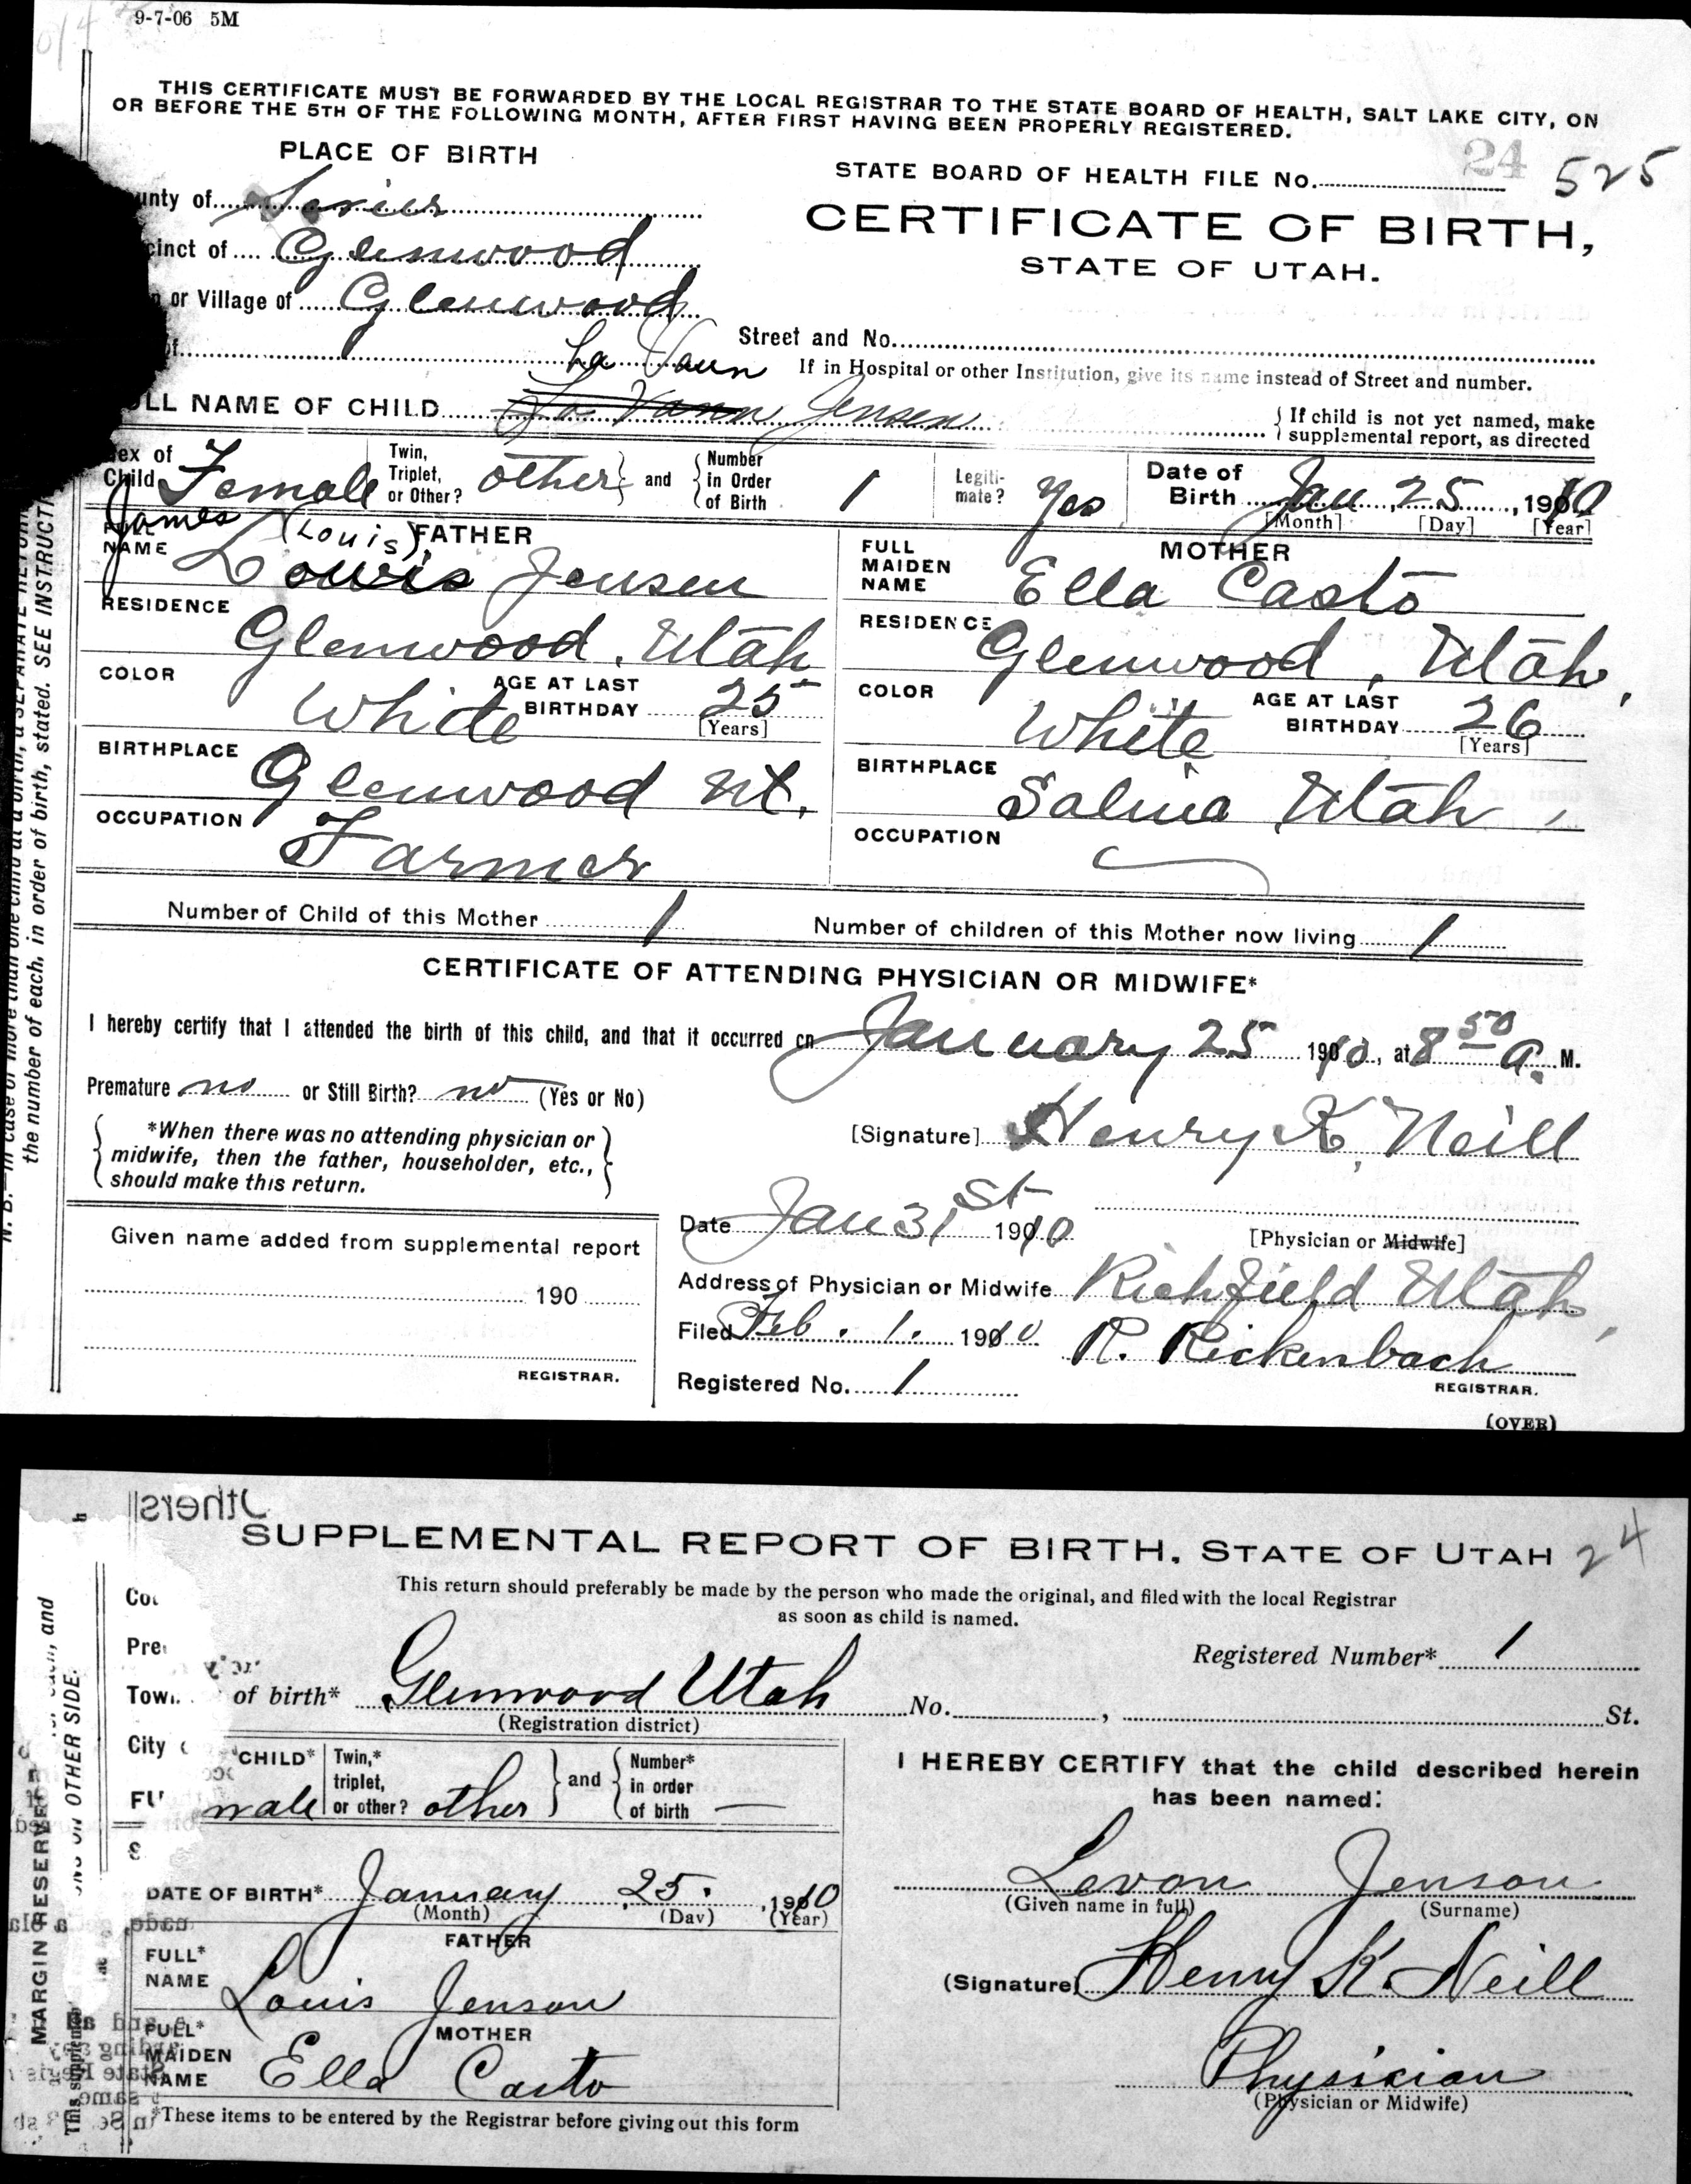 9-7-06 5M
THIS CERTIFICATE MUST BE FORWARDED BY THE LOCAL REGISTRAR TO THE STATE BOARD OF HEALTH, SALT LAKE CITY, ON
OR BEFORE THE 5TH OF THE FOLLOWING MONTH, AFTER FIRST HAVING BEEN PROPERLY REGISTERED.
PLACE OF BIRTH
STATE BOARD OF HEALTH FILE No. 24 525
unty of Sevier
CERTIFICATE OF BIRTH,
cinct of Glenwood
STATE OF UTAH.
or Village of Glenwood
Street and No.
of
La Vaun
If in Hospital or other Institution, give its name instead of Street and number.
LL NAME OF CHILD La Vann Jensen
{ If child is not yet named, make
supplemental report, as directed
ex of Child Female
Twin, Triplet, or Other? other } and { Number in Order of Birth 1
Legiti-mate? Yes
Date of Birth Jan 25, 1910
[Month] [Day] [Year]
James (Louis)
FATHER
FULL NAME Lowis Jensen
RESIDENCE
Glenwood, Utah
COLOR White
AGE AT LAST BIRTHDAY 25
[Years]
BIRTHPLACE
Glenwood Ut.
OCCUPATION
Farmer
MOTHER
FULL MAIDEN NAME Ella Casto
RESIDENCE
Glenwood, Utah,
COLOR White
AGE AT LAST BIRTHDAY 26
[Years]
BIRTHPLACE
Salina, Utah,
OCCUPATION
Number of Child of this Mother 1
Number of children of this Mother now living 1
CERTIFICATE OF ATTENDING PHYSICIAN OR MIDWIFE*
I hereby certify that I attended the birth of this child, and that it occurred on January 25 1910, at 8 50 A. M.
Premature no or Still Birth? no (Yes or No)
*When there was no attending physician or
midwife, then the father, householder, etc.,
should make this return.
[Signature] Henry K. Neill
Date Jan 31st 1910
[Physician or Midwife]
Given name added from supplemental report
190
REGISTRAR.
Address of Physician or Midwife Richfield Utah,
Filed Feb. 1. 1910
R. Rickenbach
REGISTRAR.
Registered No. 1
(OVER)
N. B.—In case of more than one child at a birth, a SEPARATE RETURN
the number of each, in order of birth, stated. SEE INSTRUCTI
SUPPLEMENTAL REPORT OF BIRTH, STATE OF UTAH 24
This return should preferably be made by the person who made the original, and filed with the local Registrar
as soon as child is named.
Registered Number* 1
of birth* Glenwood Utah No. , St.
(Registration district)
CHILD* male
Twin,* triplet, or other? other } and { Number* in order of birth —
DATE OF BIRTH* January 25, 1910
(Month) (Day) (Year)
FATHER
FULL* NAME Louis Jenson
MOTHER
FULL* MAIDEN NAME Ella Casto
*These items to be entered by the Registrar before giving out this form
I HEREBY CERTIFY that the child described herein
has been named:
Levon Jenson
(Given name in full) (Surname)
(Signature) Henry K. Neill
Physician
(Physician or Midwife)
MARGIN RESERVE
ON OTHER SIDE.